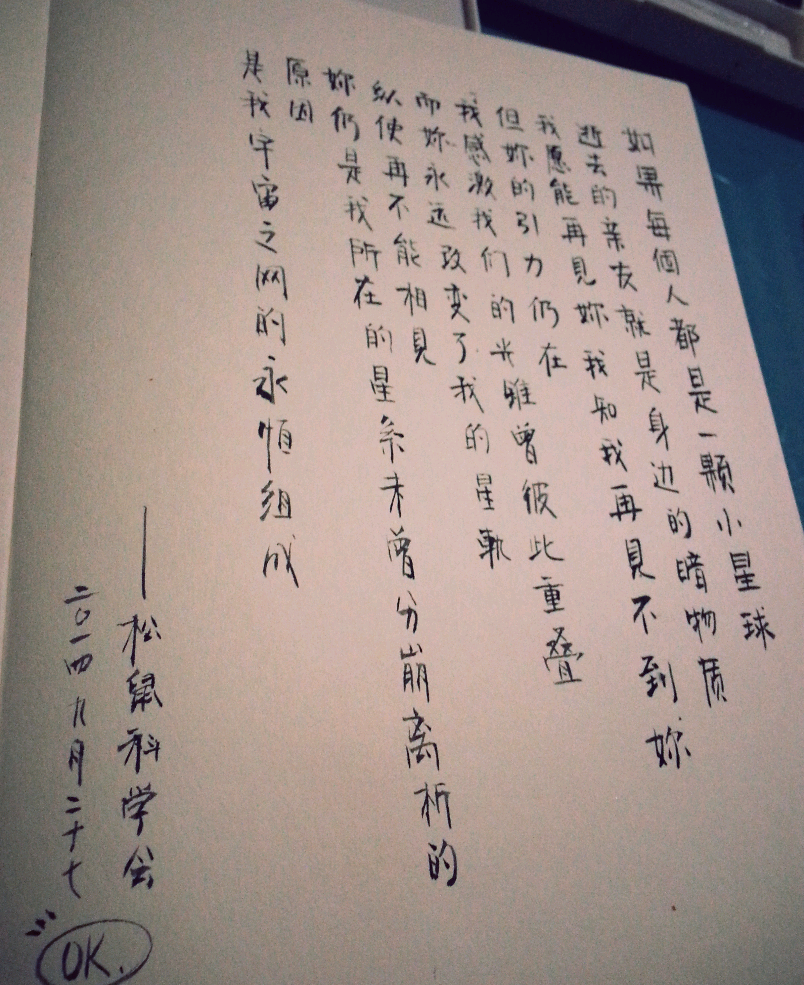 如果每個人都是一顆小星球
逝去的亲友就是身边的暗物质
我愿能再見妳我知我再見不到妳
但妳的引力仍在
我感激我们的光雖曾彼此重叠
而妳永远改变了我的星軌
纵使再不能相見
妳仍是我所在的星系未曾分崩离析的
原因
是我宇宙之网的永恒组成
——松鼠科学会
二〇一四九月二十七
OK.